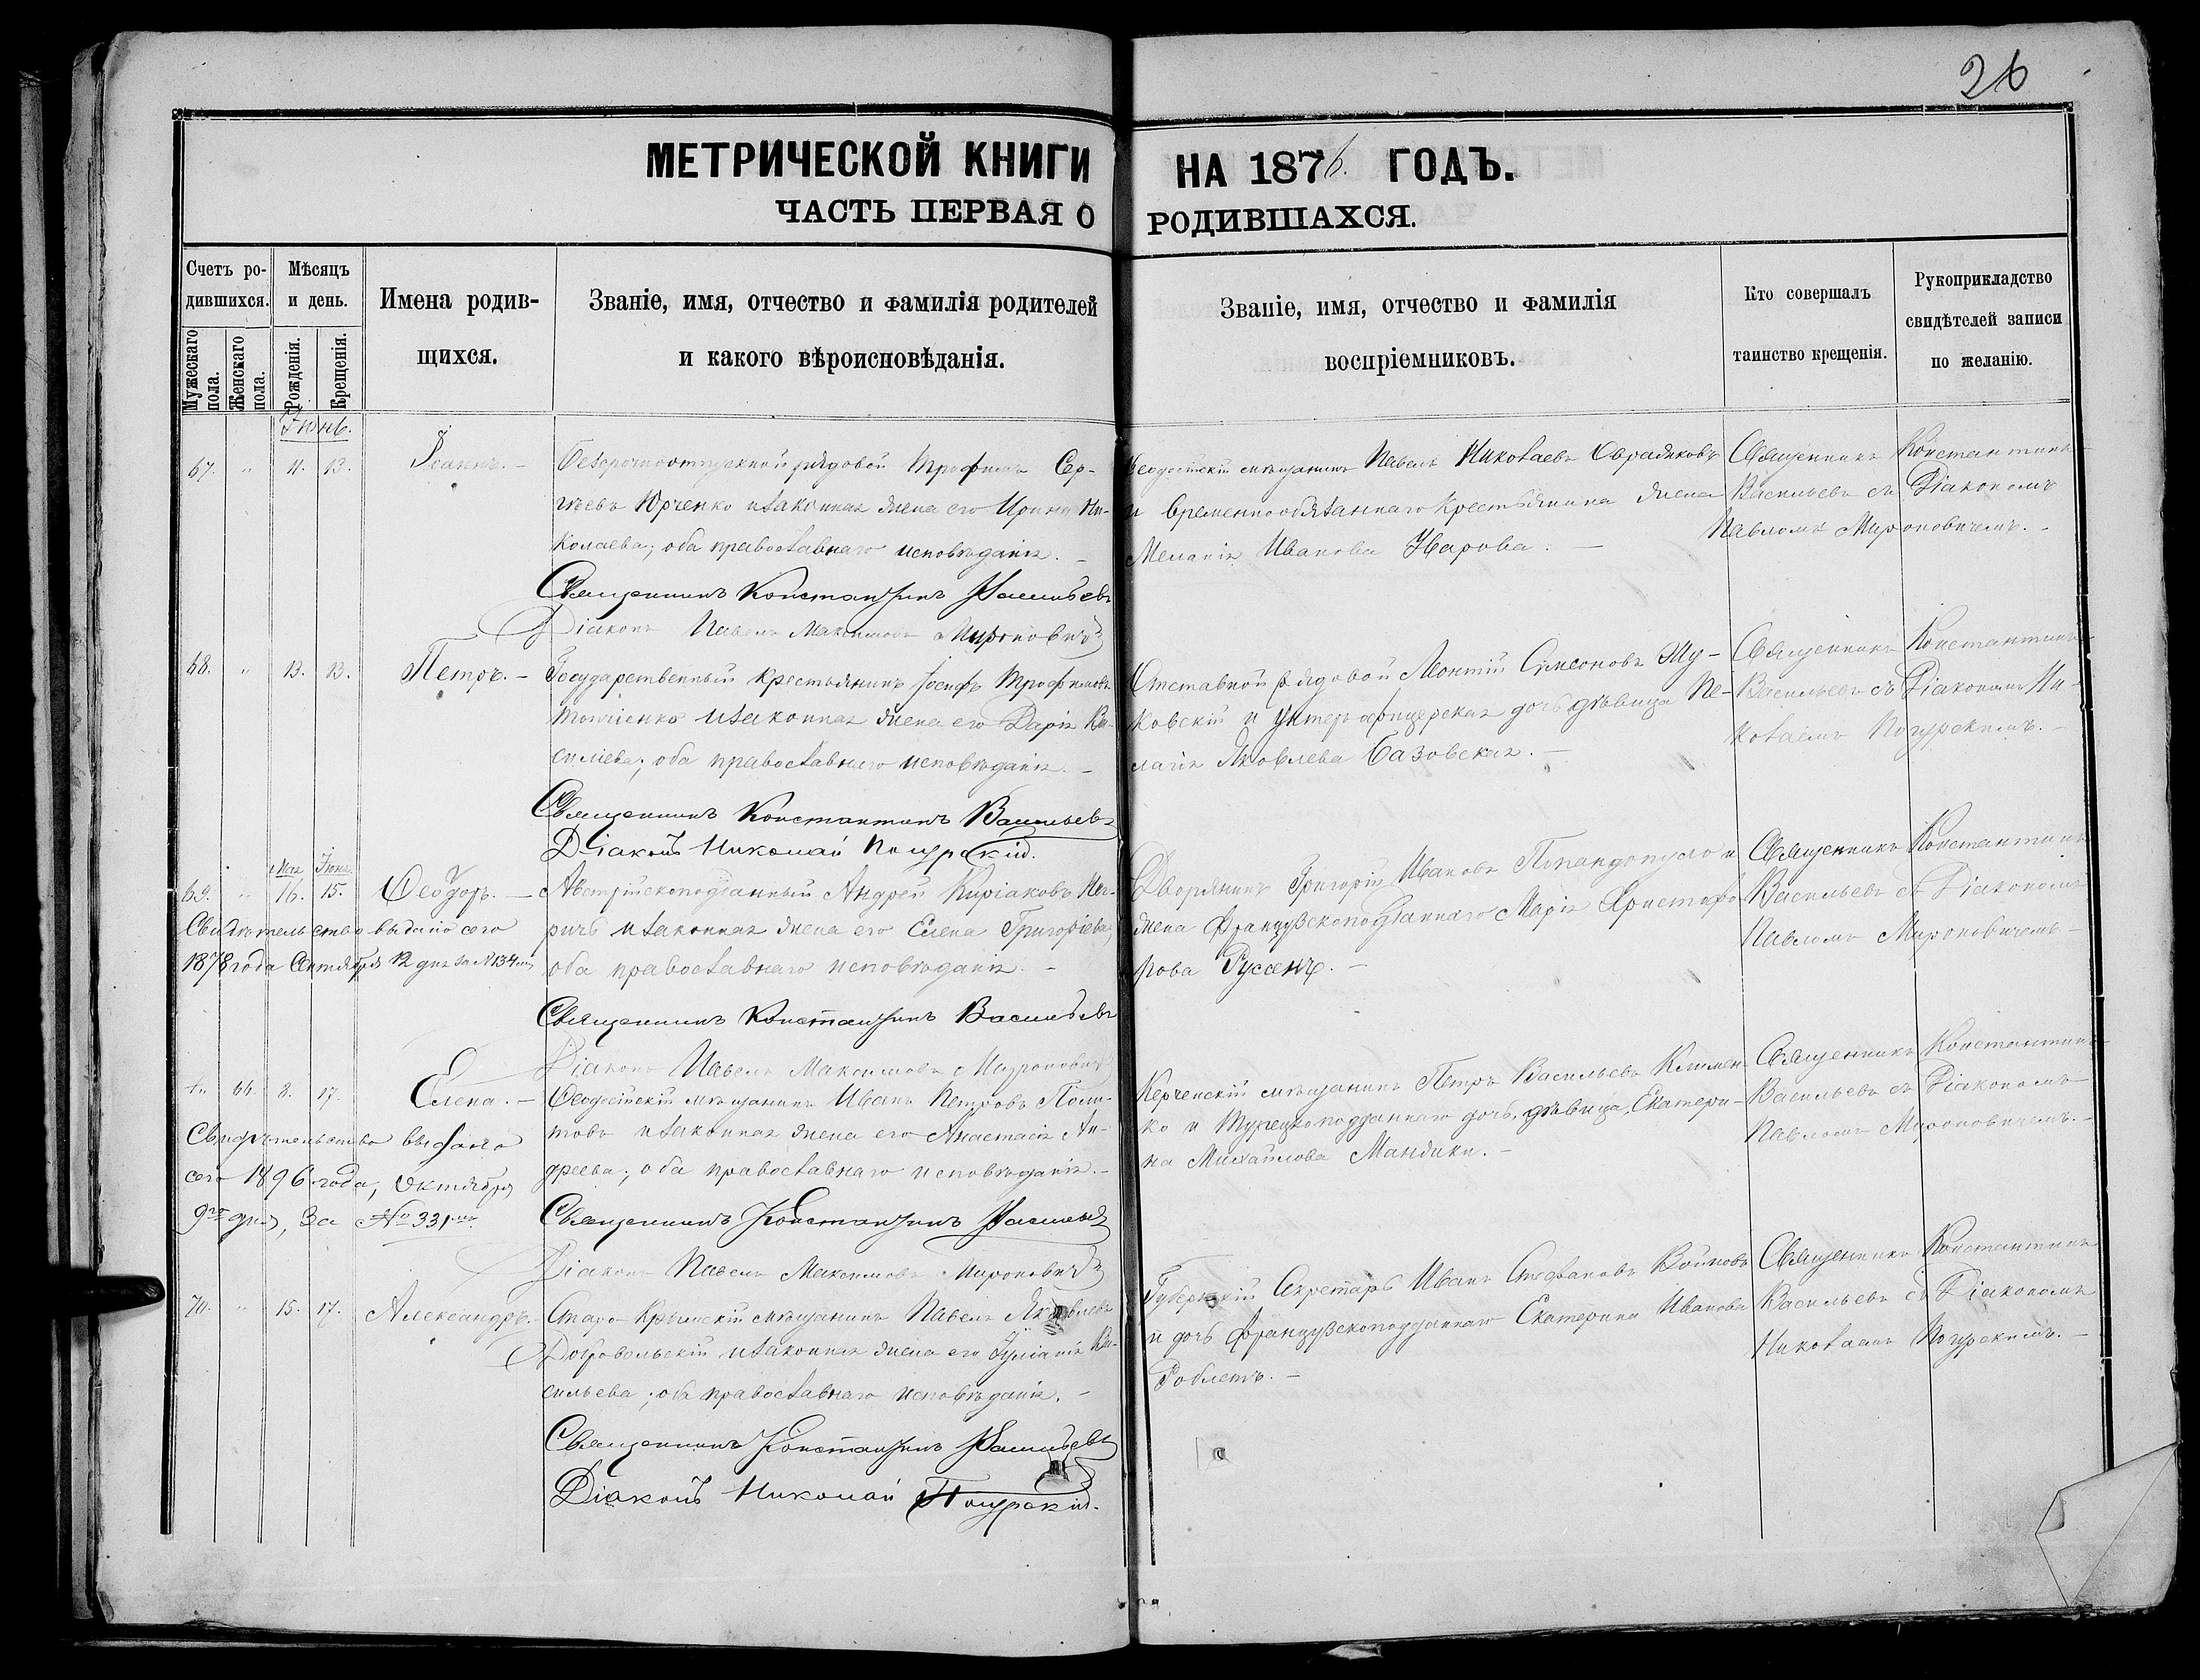 26
МЕТРИЧЕСКОЙ КНИГИ НА 1876. ГОДЪ.
ЧАСТЬ ПЕРВАЯ О РОДИВШАХСЯ.
Счетъ родившихся.
Мужескаго пола.
Женскаго пола.
Мѣсяцъ и день.
Рожденія.
Крещенія.
Имена родившихся.
Званіе, имя, отчество и фамилія родителей
и какого вѣроисповѣданія.
Званіе, имя, отчество и фамилія
воспріемниковъ.
Кто совершалъ
таинство крещенія.
Рукоприкладство
свидѣтелей записи
по желанію.
Іюнь.
67. " 11. 13. Іоаннъ. —
Безсрочноотпускной рядовой Трофимъ Сер-
гѣевъ Юрченко и законная жена его Ирина Ни-
колаева; оба православнаго исповѣданія. —
Священникъ Константинъ Васильевъ
Діаконъ Павелъ Максимовъ Мироновичъ
Ѳеодосійскій мѣщанинъ Павелъ Николаевъ
и временнообязаннаго крестьянина жена
Меланія Иванова Жарова. —
Священникъ Константинъ
Васильевъ съ Діакономъ
Павломъ Мироновичемъ. —
68. " 13. 13. Петръ. —
Государственный крестьянинъ Іосифъ Трофимовъ
и законная жена его Дарія Ва-
силіева; оба православнаго исповѣданія. —
Священникъ Константинъ Васильевъ
Діаконъ Николай Погурскій.
Отставной рядовой Леонтій Сумеоновъ Жу-
ковскій и унтеръ-офицерская дочь дѣвица Пе-
лагія Яковлева Базовская. —
Священникъ Константинъ
Васильевъ съ Діакономъ Ни-
колаемъ Погурскимъ. —
Мая Іюня
69. " 16. 15. Ѳеодоръ. —
Свидѣтельство выдано сего
1878 года Сентября 12 дня за №134мъ
Австрійскоподданный Андрей Киріаковъ
и законная жена его Елена Григоріева;
оба православнаго исповѣданія. —
Священникъ Константинъ Васильевъ
Діаконъ Павелъ Максимовъ Мироновичъ
Дворянинъ Григорій Ивановъ Попандопуло и
жена Французскоподданнаго Марія Христофо-
рова Руссенъ. —
Священникъ Константинъ
Васильевъ съ Діакономъ
Павломъ Мироновичемъ —
" 66. 8. 17. Елена. —
Свидѣтельство выдано
сего 1896 года, Октября
9го дня, за № 331мъ.
Ѳеодосійскій мѣщанинъ Иванъ Петровъ
и законная жена его Анастасія Ан-
дреева; оба православнаго исповѣданія. —
Священникъ Константинъ Васильевъ
Діаконъ Павелъ Максимовъ Мироновичъ
Керченскій мѣщанинъ Петръ Васильевъ Климен-
ко и Турецкоподданнаго дочь, дѣвица, Екатери-
на Михайлова Мандики. —
Священникъ Константинъ
Васильевъ съ Діакономъ
Павломъ Мироновичемъ. —
70. " 15. 17. Александръ. —
Старо-Крымскій мѣщанинъ Павелъ Яковлевъ
Добровольскій и законная жена его Іуліанія Ва-
сильева; оба православнаго исповѣданія. —
Священникъ Константинъ Васильевъ
Діаконъ Николай Погурскій.
Губернскій Секретарь Иванъ Стефановъ Войновъ
и дочь Французскоподданнаго Екатерина Иванова
Роблетъ. —
Священникъ Константинъ
Васильевъ съ Діакономъ
Николаемъ Погурскимъ. —